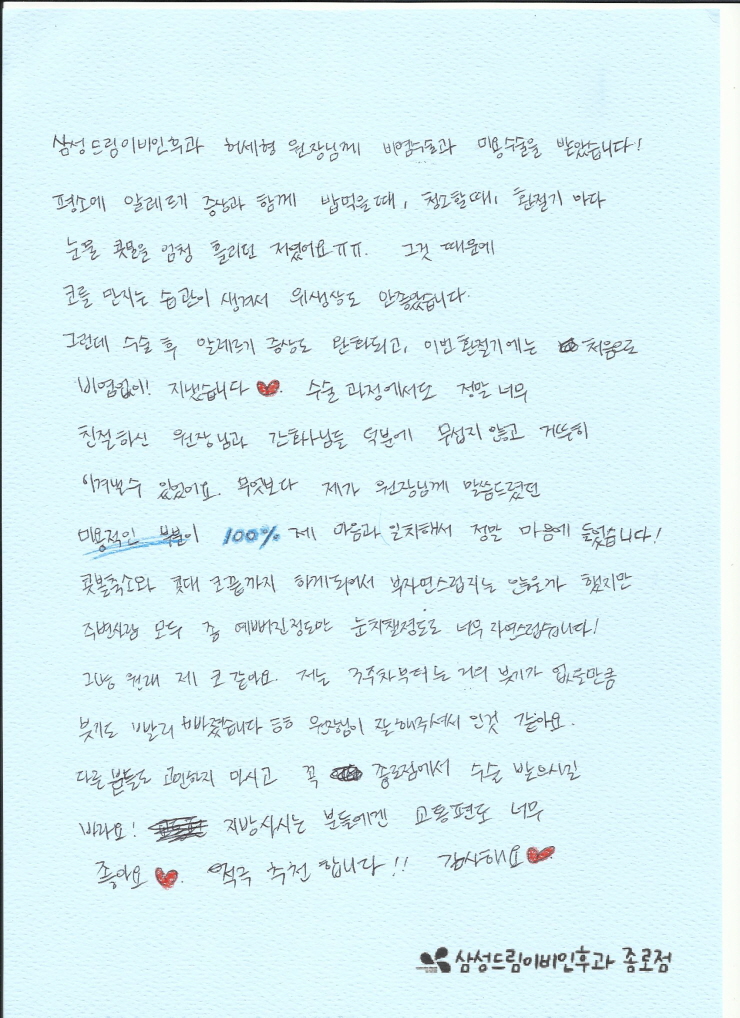 삼성드림이비인후과 허세형 원장님께 비염수술과 미용수술을 받았습니다!
평소에 알레르기 증상과 함께 밥먹을때, 청소할때, 환절기 마다
눈물 콧물을 엄청 흘리던 저였어요ㅠㅠ. 그것 때문에
코를 만지는 습관이 생겨서 위생상도 안좋았습니다.
그런데 수술 후 알레르기 증상도 완화되고, 이번환절기에는 처음으로
비염없이! 지냈습니다 ♥. 수술 과정에서도 정말 너무
친절하신 원장님과 간호사님들 덕분에 무섭지 않고 거뜬히
이겨낼수 있었어요. 무엇보다 제가 원장님께 말씀드렸던
미용적인 부분이 100% 제 마음과 일치해서 정말 마음에 들었습니다!
콧볼축소와 콧대 코끝까지 하게되어서 부자연스럽지는 않을까 했지만
주변사람 모두 좀 예뻐진정도만 눈치챌정도로 너무 자연스럽습니다!
그냥 원래 제 코 같아요. 저는 3주차부터는 거의 붓기가 없을만큼
붓기도 빨리 빠졌습니다 ㅎㅎ 원장님이 잘해주셔서 인것 같아요.
다른 분들도 고민하지 마시고 꼭 종로점에서 수술 받으시길
바라요! 지방사시는 분들에겐 교통편도 너무
좋아요 ♥. 적극 추천 합니다!! 감사해요♥
삼성드림이비인후과 종로점